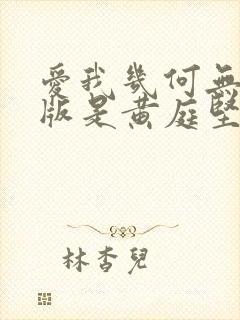 愛我幾何無
版是黄庭堅
林杏兒